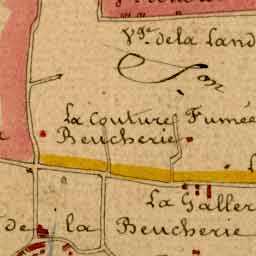 Vge. de la Land
La Couture Fumée
Beucherie
La Galler
de la Beucherie